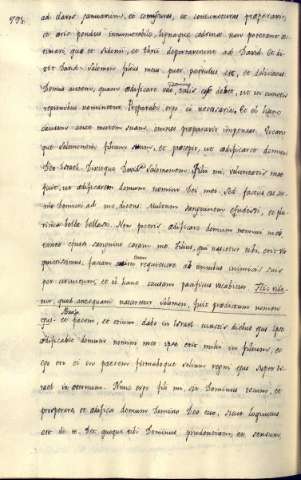 798.
ad clavos januarum, et commissuras, et juncturas praeparavit,
et aeris pondus innumerabile, lignaque cedrina non poterant ae-
stimari, quae et Sidonii, et Tyrii deportaverant ad David. Et di-
xit David: Salomon filius meus puer parvulus est, et delicatus
Domus autem, quam aedificare volo, talis esse debet, ut in cunctis
regionibus nominetur. Praeparabo ergo ei necessaria. Et ob hanc
causam ante mortem suam omnes praeparavit impensas. Vocavit-
que Salomonem filium suum, et praecepit, ut aedificaret domum
Deo Israel. Dixitque David ad Salomonem: Fili mi, voluntatis meae
fuit, ut aedificarem domum nomini Dei mei. Sed factus est ser-
mo Domini ad me, dicens: Multum sanguinem effudisti, et plu-
rima bella bellasti. Non poteris aedificare domum nomini meo,
tanto effuso sanguine coram me. Filius, qui nascetur tibi, erit vir
quietissimus, faciam enim eum requiescere ab omnibus inimicis suis
per circuitum, et ob hanc causam pacificus vocabitur.
que et pacem, et otium dabo in Israel cunctis diebus ejus. Ipse
aedificabit domum nomini meo, ipse erit mihi in filium, et
ego ero ei in patrem, firmaboque solium regni ejus super Is-
rael in aeternum. Nunc ergo fili mi, sit Dominus tecum, et
prosperare, et aedifica domum Domino Deo tuo, sicut locutus
est de te. Det quoque tibi Dominus prudentiam, et sensum